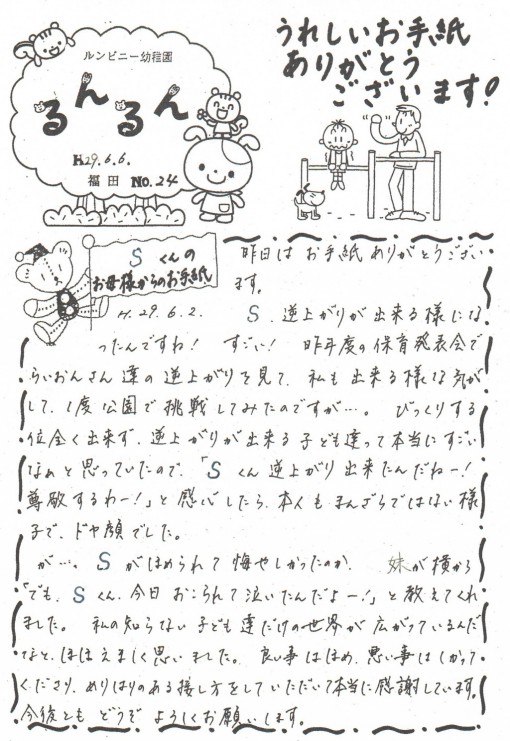 ルンビニー幼稚園
るんるん
H29.6.6.
福田 No.24
うれしいお手紙
ありがとう
ございます!
S くんの
お母様からのお手紙
H.29.6.2.
昨日は お手紙 ありがとうござい
ます。
S、逆上がりが 出来る様にな
ったんですね! すごい! 昨年度の保育発表会で
らいおんさん達の逆上がりを見て、私も出来る様な気が
して、1度公園で挑戦してみたのですが…。 びっくりする
位全く出来ず、逆上がりが出来る子ども達って本当にすごい
なぁと思っていたので、「S くん逆上がり出来たんだねー!
尊敬するわー!」と感心したら、本人もまんざらではない様
子で、ドヤ顔でした。
が…。S がほめられて悔やしかったのか、 妹が横から
「でも、S くん、今日 おこられて泣いたんだよー!」と教えてくれ
ました。 私の知らない子ども達だけの世界が広がっているんだ
なと、ほほえましく思いました。良い事はほめ、悪い事はしかって
くださり、めりはりのある接し方をしていただいて本当に感謝しています。
今後とも どうぞ よろしくお願いします。